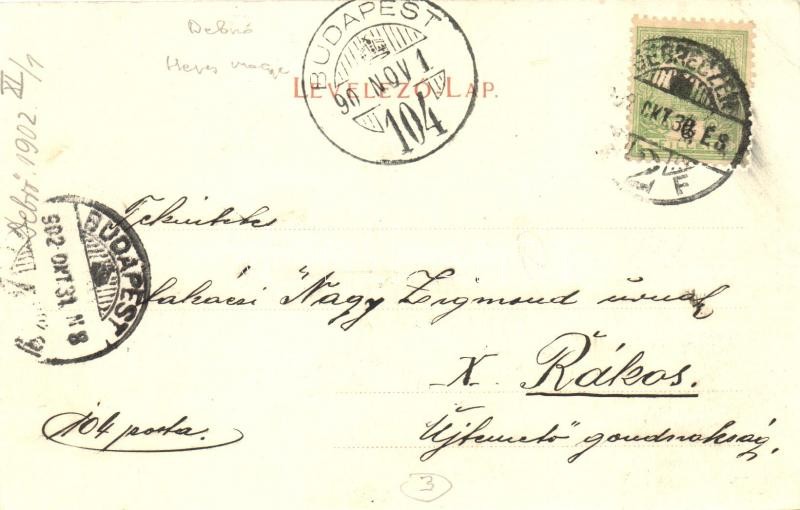 Debrő
Heves megye
BUDAPEST
90 NOV 1
104
LEVELEZŐ-LAP.
DEBRECZEN
OKT. 30. É8
F
Debrő. 1902. XI/1
BUDAPEST
902 OKT. 31. N8
Tekintetes
lakácsi "Nagy Zsigmond úrnak
X. Rákos.
104 posta.
"Újtemető" gondnokság.
3